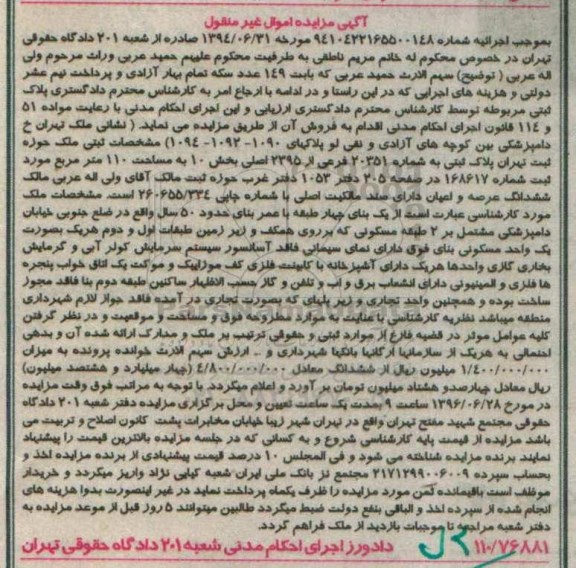 آگهی مزایده اموال غیر منقول
بموجب اجرائیه شماره ۹۴۱۰۴۲۲۱۶۵۵۰۰۱۴۸ مورخه ۱۳۹۴/۰۶/۳۱ صادره از شعبه ۲۰۱ دادگاه حقوقی
تهران در خصوص محکوم له خانم مریم ناطقی به طرفیت محکوم علیهم حمید عربی وراث مرحوم ولی
اله عربی ( توضیح) سهم الارث حمید عربی که بابت ۱۴۹ عدد سکه تمام بهار آزادی و پرداخت نیم عشر
دولتی و هزینه های اجرایی که در این راستا و در ادامه با ارجاع امر به کارشناس محترم دادگستری پلاک
ثبتی مربوطه توسط کارشناس محترم دادگستری ارزیابی و این اجرای احکام مدنی با رعایت مواده ۵۱
و ۱۱۴ قانون اجرای احکام مدنی اقدام به فروش آن از طریق مزایده می نماید. ( نشانی ملک تهران خ
دامپزشکی بین کوچه های آزادی و نقی لو پلاکهای ۱۰۹۰- ۱۰۹۲- ۱۰۹۴) مشخصات ثبتی ملک حوزه
ثبت تهران پلاک ثبتی به شماره ۲۰۳۵۱ فرعی از ۲۳۹۵ اصلی بخش ۱۰ به مساحت ۱۱۰ متر مربع مورد
ثبت شماره ۱۶۸۶۱۷ در صفحه ۲۰۵ دفتر ۱۰۵۳ دفتر غرب حوزه ثبت مالک آقای ولی اله عربی مالک
ششدانگ عرصه و اعیان دارای سند مالکیت اصلی با شماره چاپی ۲۶۰۶۵۵/۳۳۴ است. مشخصات ملک
مورد کارشناسی عبارت است از یک بنای چهار طبقه با عمر بنای حدود ۵۰ سال واقع در ضلع جنوبی خیابان
دامپزشکی مشتمل بر ۲ طبقه مسکونی که برروی همکف و زیر زمین طبقات اول و دوم هریک بصورت
یک واحد مسکونی بنای فوق دارای نمای سیمانی فاقد آسانسور سیستم سرمایش کولر آبی و گرمایش
بخاری گازی واحدها هریک دارای آشپزخانه با کابینت فلزی کف موزاییک و موکت یک اتاق خواب پنجره
ها فلزی و آلمینیونی دارای انشعاب برق و آب و تلفن و گاز حسب الاظهار ساکنین طبقه دوم بنا فاقد مجوز
ساخت بوده و همچنین واحد تجاری و زیر پله‌ای که بصورت تجاری در آمده فاقد جواز لازم شهرداری
منطقه میباشد نظریه کارشناسی با عنایت به موارد مطروحه فوق و مساحت و موقعیت و در نظر گرفتن
کلیه عوامل موثر در قضیه فارغ از موارد ثبتی و حقوقی ترتیب بر ملک و مدارک ارائه شده آن و بدهی
احتمالی به هریک از سازمانها ارگانها بانکها شهرداری و ... ارزش سهم الارث خوانده پرونده به میزان
۱/۴۰۰/۰۰۰/۰۰۰ میلیون ریال از ششدانگ معادل ۴/۸۰۰/۰۰۰/۰۰۰ (چهار میلیارد و هشتصد میلیون)
ریال معادل چهارصدو هشتاد میلیون تومان بر آورد و اعلام میگردد. با توجه به مراتب فوق وقت مزایده
در مورخ ۱۳۹۶/۰۶/۲۸ ساعت ۹ بمدت یک ساعت تعیین و محل برگزاری مزایده دفتر شعبه ۲۰۱ دادگاه
حقوقی مجتمع شهید مفتح تهران واقع در تهران شهر زیبا خیابان مخابرات پشت کانون اصلاح و تربیت می
باشد مزایده از قیمت پایه کارشناسی شروع و به کسانی که در جلسه مزایده بالاترین قیمت را پیشنهاد
نمایند برنده مزایده شناخته می شود و فی المجلس ۱۰ درصد قیمت پیشنهادی از برنده مزایده اخذ و
بحساب سپرده ۲۱۷۱۲۹۹۰۰۶۰۰۹ مجتمع نز بانک ملی ایران شعبه کیایی نژاد واریز میگردد و خریدار
موظف است باقیمانده ثمن مورد مزایده را ظرف یکماه پرداخت نماید در غیر اینصورت بدوا هزینه های
انجام شده از سپرده اخذ و الباقی بنفع دولت ضبط میگردد طالبین میتوانند ۵ روز قبل از موعد مزایده به
دفتر شعبه مراجعه تا موجبات بازدید از ملک فراهم گردد.
۱۱۰/۷۶۸۸۱ دادورز اجرای احکام مدنی شعبه ۲۰۱ دادگاه حقوقی تهران